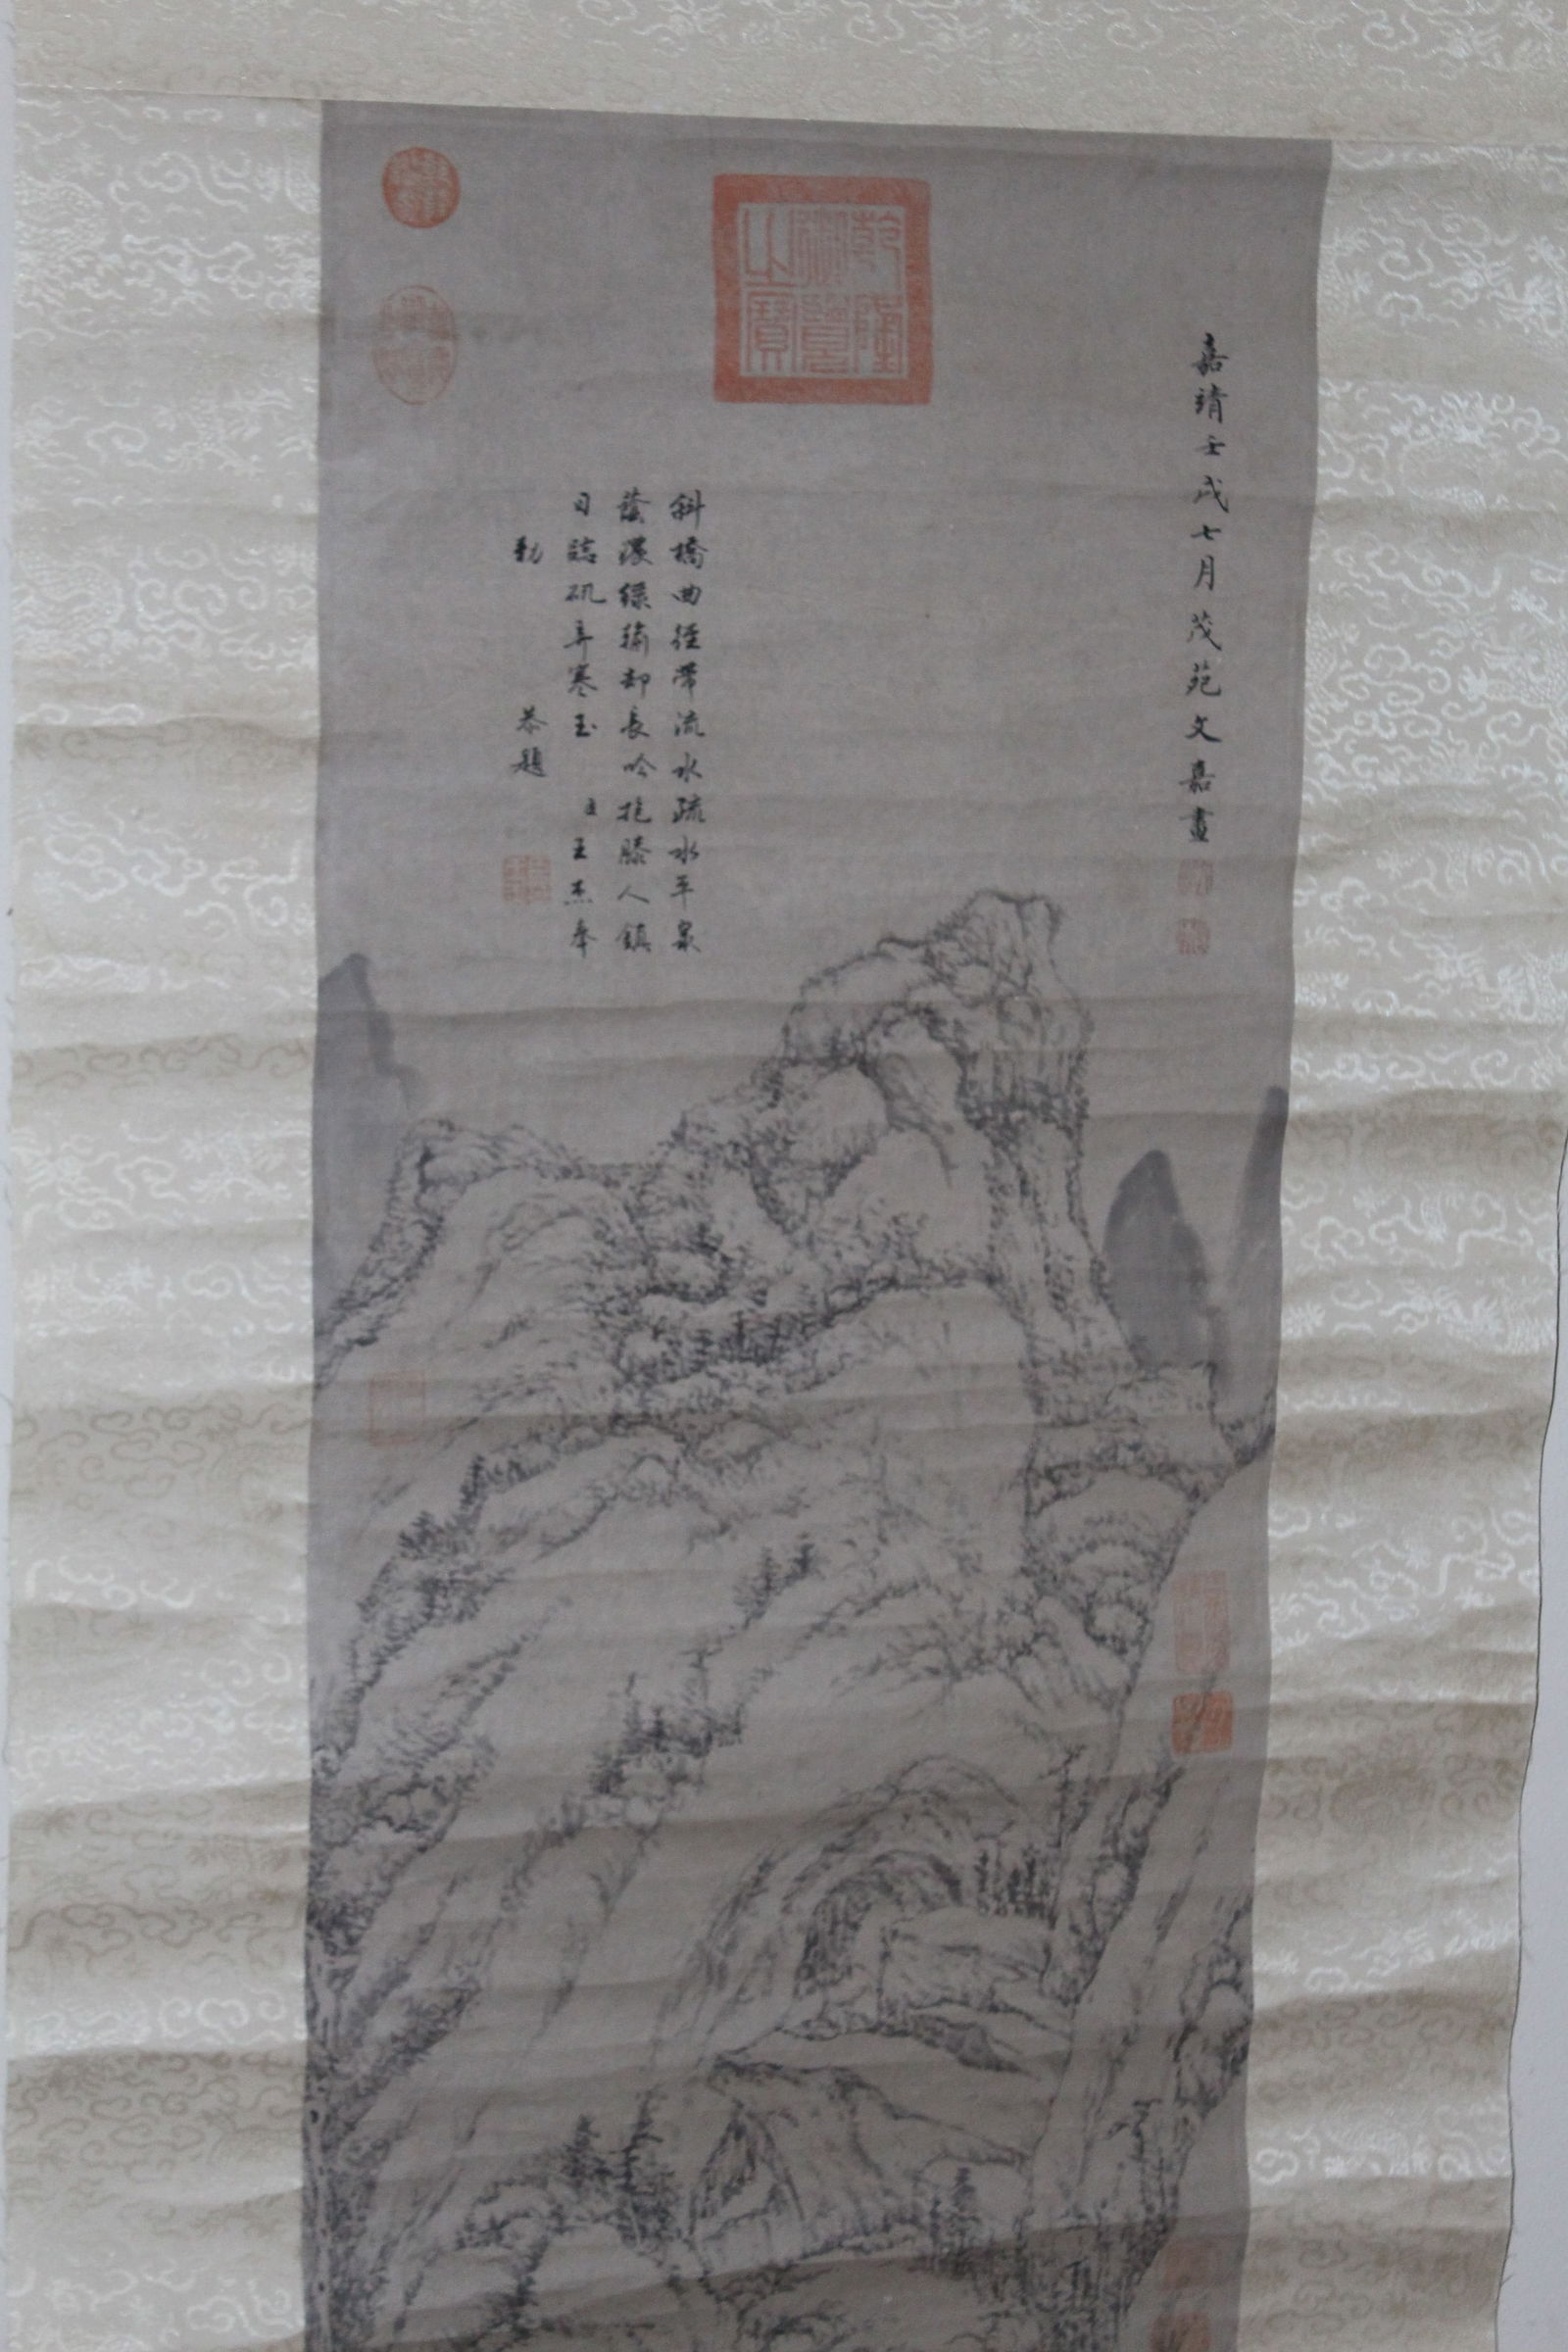 嘉靖壬戌七月茂苑文嘉畫
乾隆
御覽
之寶
斜橋曲徑帶流水疏水平泉
蔭濃綠輸却長吟抱膝人鎮
日臨矶弄寒玉 臣王杰奉
勅 恭題